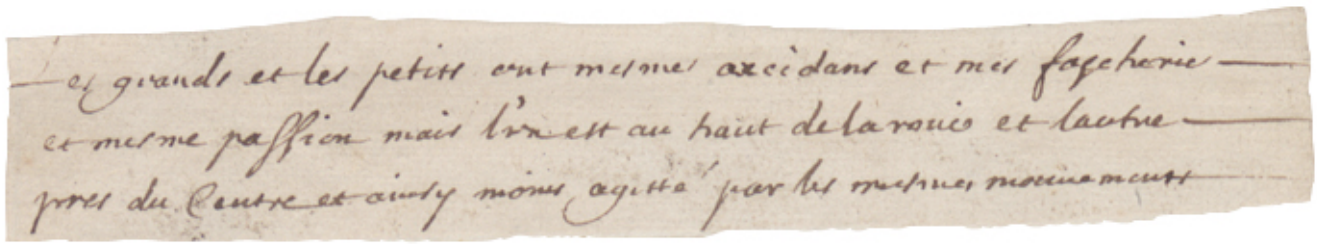 es grands et les petits ont mesmes accidans et mes fascherie
et mesme passion mais l'vn est au haut de la roüe et lautre
pres du Centre et ainsy moins agitté par les mesmes mouuements